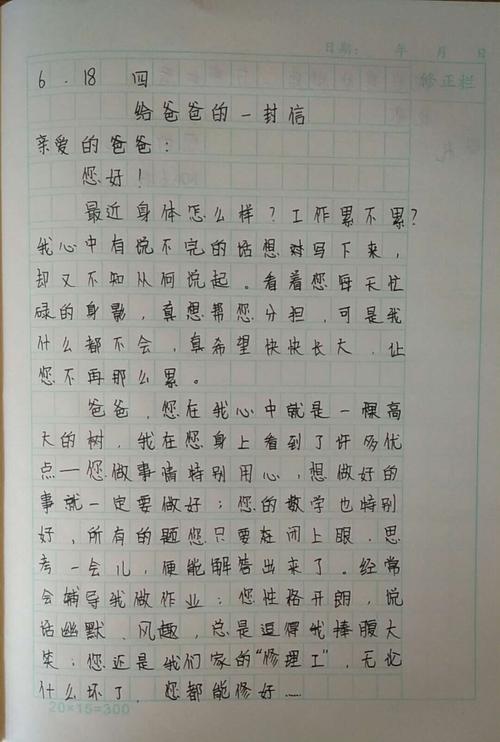 日期： 年 月 日
修正栏
6.18 四
给爸爸的一封信
亲爱的爸爸：
您好！
最近身体怎么样？工作累不累？
我心中有说不完的话想对写下来，
却又不知从何说起。看着您每天忙
碌的身影，真想帮您分担，可是我
什么都不会，真希望快快长大，让
您不再那么累。
爸爸，您在我心中就是一棵高
大的树，我在您身上看到了许多优
点—您做事情特别用心，想做好的
事就一定要做好；您的数学也特别
好，所有的题您只要在闭上眼，思
考一会儿，便能解答出来了。经常
会辅导我做作业；您性格开朗，说
话幽默、风趣，总是逗得我捧腹大
笑；您还是我们家的“修理工”，无论
什么坏了 您都能修好……
20×15=300